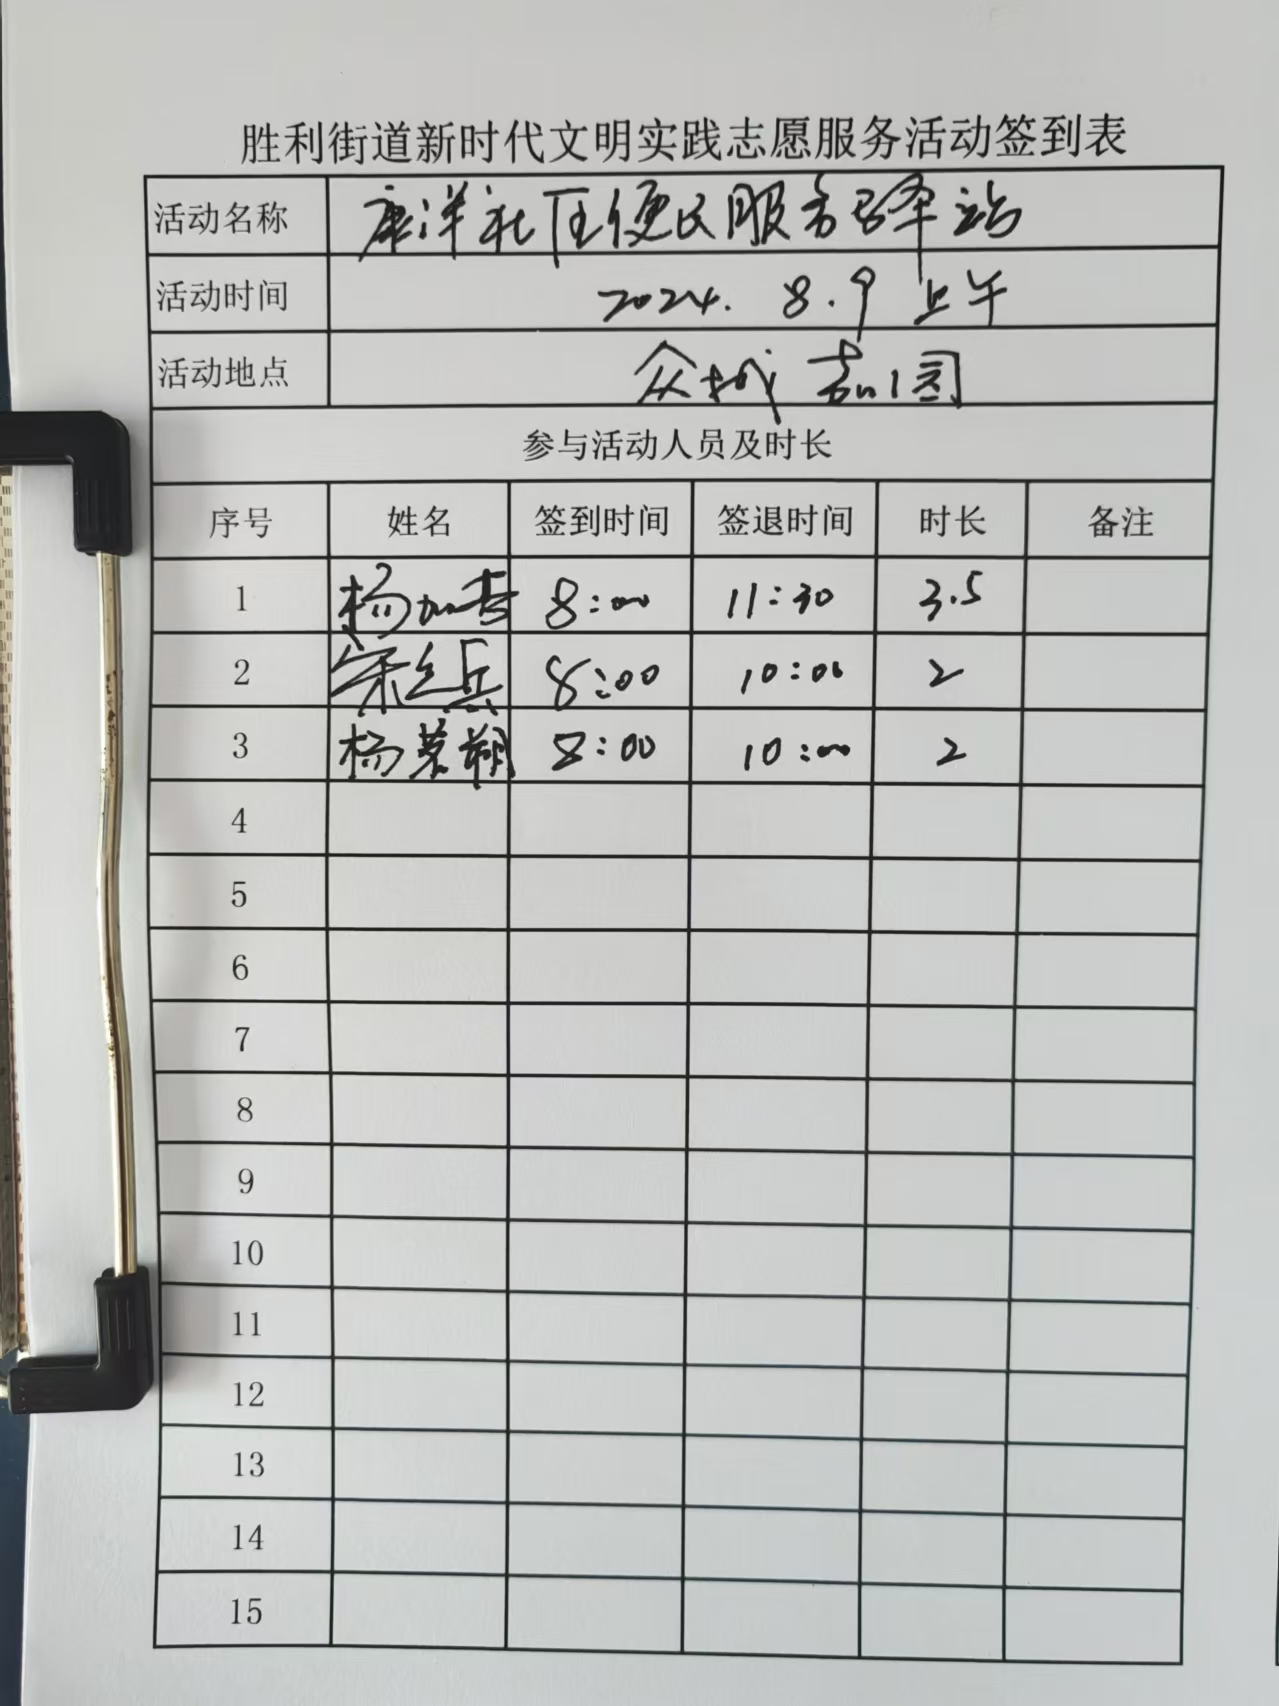 胜利街道新时代文明实践志愿服务活动签到表
活动名称 康洋社区便民服务驿站
活动时间 2024. 8.9 上午
活动地点 众城嘉园
参与活动人员及时长
序号 姓名 签到时间 签退时间 时长 备注
1 杨加 8:00 11:30 3.5
2 宋 兵 8:00 10:00 2
3 杨 8:00 10:00 2
4
5
6
7
8
9
10
11
12
13
14
15